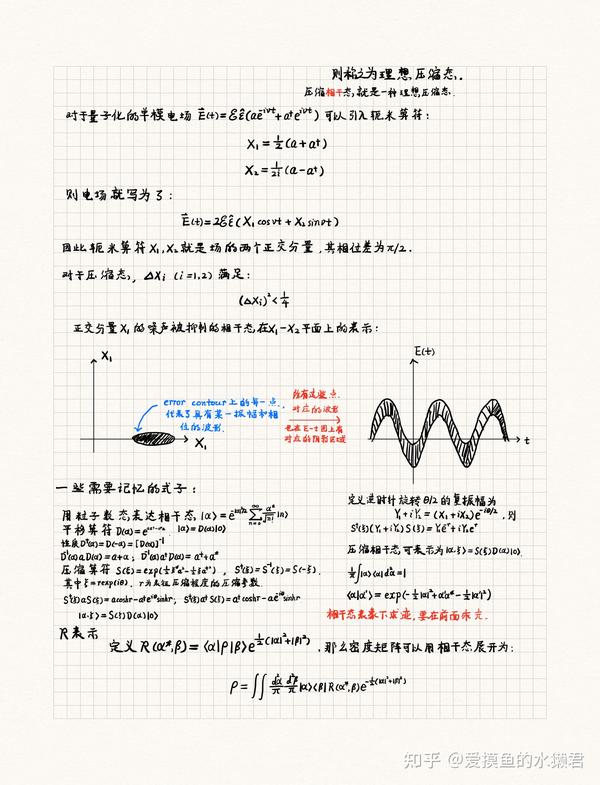 则称之为理想压缩态.
压缩相干态,就是一种理想压缩态.
对于量子化的单模电场 E⃗(t)=ℰε̂(ae^{-iνt}+a†e^{iνt}) 可以引入厄米算符:
X₁=½(a+a†)
X₂=1/2i(a-a†)
则电场就写为了:
E⃗(t)=2ℰε̂(X₁cosνt+X₂sinνt)
因此厄米算符X₁,X₂就是场的两个正交分量,其相位差为π/2.
对于压缩态, ΔXᵢ (i=1,2) 满足:
(ΔXᵢ)²<¼
正交分量X₁的噪声被抑制的相干态,在X₁-X₂平面上的表示:
X₁
E(t)
error contour上的每一点,
代表了具有某一振幅和相
位的波形.
所有这些点
对应的波形
也在E-t图上有
对应的阴影区域
X₁
t
一些需要记忆的式子:
用粒子数态表达相干态, |α⟩=e^{-|α|²/2}∑_{n=0}^{∞} αⁿ/√n! |n⟩
平移算符D(α)=e^{αa†-α*a} |α⟩=D(α)|0⟩
性质D†(α)=D(-α)=[D(α)]⁻¹
D⁻¹(α)aD(α)=a+α; D⁻¹(α)a†D(α)=a†+α*
压缩算符 S(ξ)=exp(½ξ*a²-½ξa†²), S†(ξ)=S⁻¹(ξ)=S(-ξ).
其中ξ=rexp(iθ). r为表征压缩程度的压缩参数.
S†(ξ)aS(ξ)=acoshr-a†e^{iθ}sinhr, S†(ξ)a†S(ξ)=a†coshr-ae^{-iθ}sinhr
|α·ξ⟩=S(ξ)D(α)|0⟩
定义逆时针旋转θ/2的复振幅为
Y₁+iY₂=(X₁+iX₂)e^{-iθ/2}, 则
S†(ξ)(Y₁+iY₂)S(ξ)=Y₁e^{-r}+iY₂e^{r}
压缩相干态,可表示为|α·ξ⟩=S(ξ)D(α)|0⟩.
1/π∫|α⟩⟨α|d²α=1
⟨α|α'⟩=exp(-½|α|²+α'α*-½|α'|²)
相干态表象下求迹,要在前面乘π.
R表示
定义R(α*,β)=⟨α|ρ|β⟩e^{½(|α|²+|β|²)}, 那么密度矩阵可以用相干态展开为:
ρ=∬d²α/π d²β/π |α⟩⟨β|R(α*,β)e^{-½(|α|²+|β|²)}
知乎 @爱摸鱼的水獭君